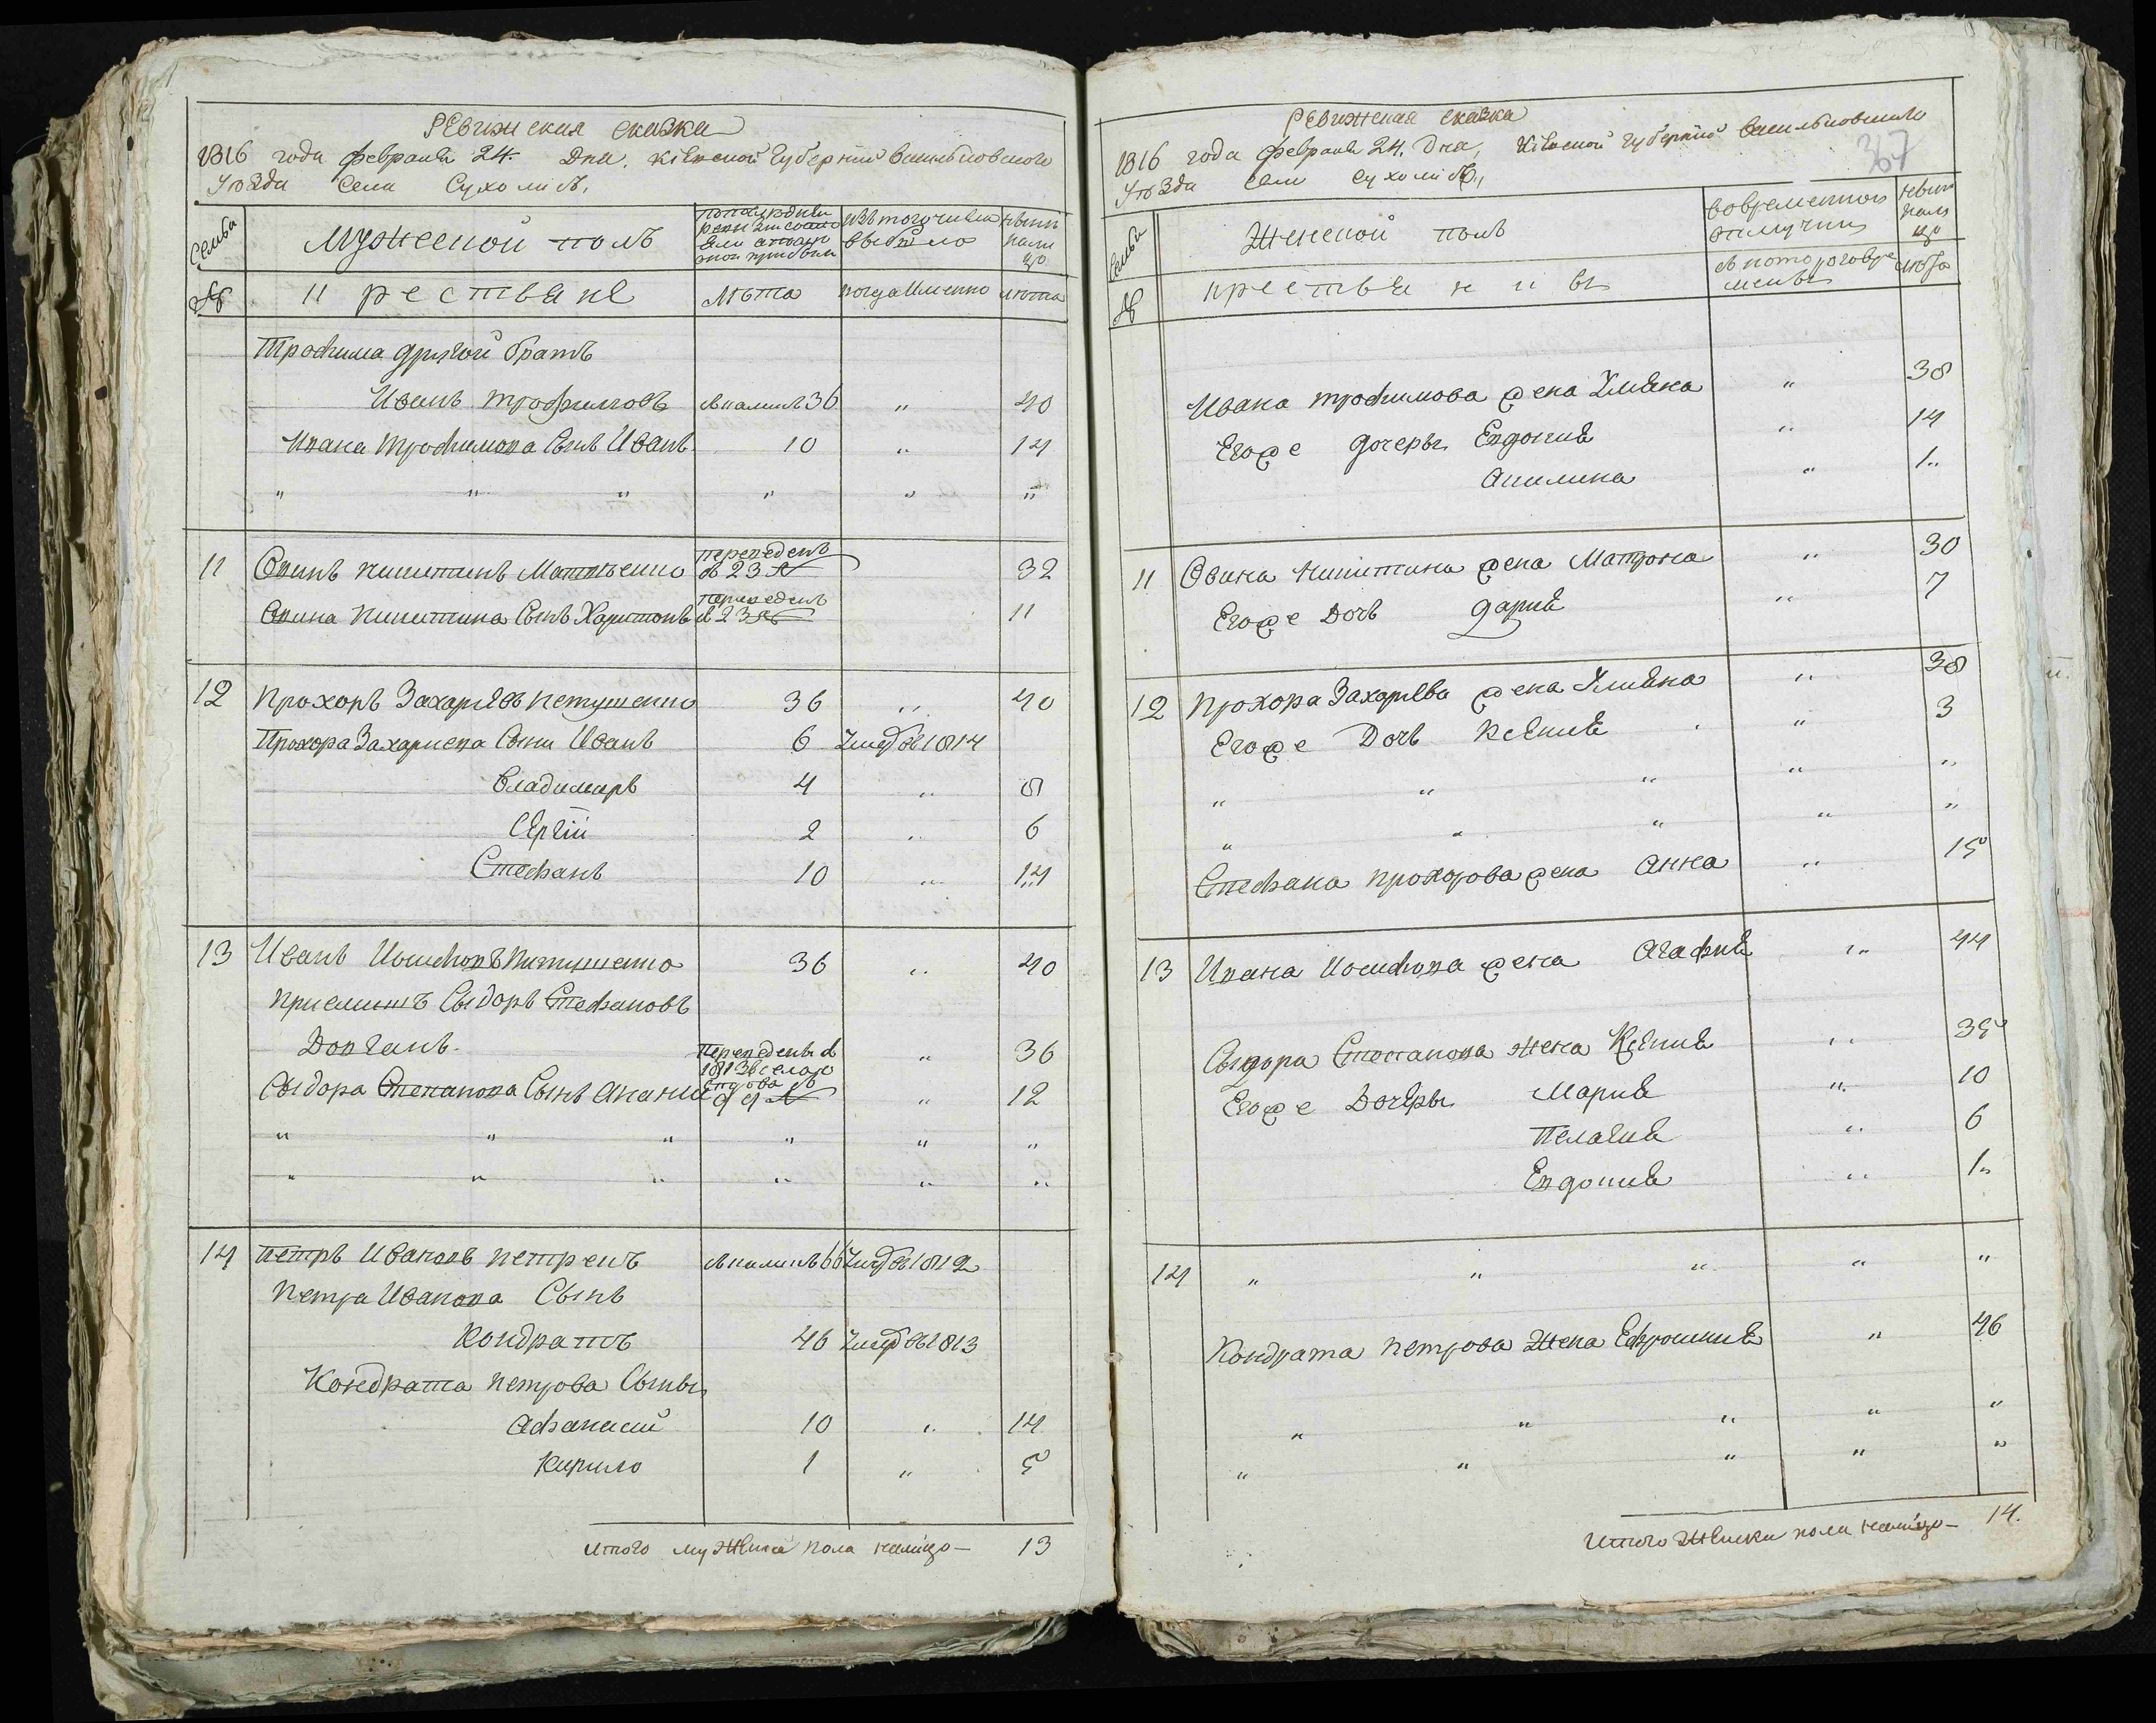 РЕвижская сказка
1816 года февраля 24. Дня. Кіевской Губерніи Васильковского
Уѣзда Села Сухолисъ,
Семьи
Мужеской полъ
по последней
ревизіи состояло
или после
оной прибыло
изъ того числа
выбыло
ныне
нали
цо
№
Крестьяне
Лѣта
когда Именно
лѣта
Трофима другой братъ
Иванъ трофимовъ 36 " 40
Ивана трофимова Сынъ Иванъ 10 " 14
" " " " " "
11 Овинъ никитинъ Матвѣенко переведенъ 32
въ 23 №
Овина Никитина Сынъ Харитонъ переведенъ 11
въ 23 №
12 Прохоръ ЗахарЕвъ Петушенко 36 " 40
Прохора Захариева Сыни Иванъ 6 Умер въ 1814
Владимиръ 4 " 8
СЕргій 2 " 6
Стефанъ 10 " 14
13 Иванъ Иосифовъ Петушенко 36 " 40
Приемишъ Сыдоръ Стефановъ
Довганъ. Переведенъ " 36
1813 въ село
Сыдора Степанова Сынъ Ананий " 12
" " " " " "
" " " " " "
14 Петръ Ивановъ Петренъ 66 Умер въ 1812
Петра Иванова Сынъ
Кондратъ 46 Умер въ 1813
Кондрата Петрова Сыны
Афанасий 10 " 14
Кирило 1 " 5
Итого мужеска пола налицо — 13
РЕвижская сказка
1816 года февраля 24. Дня, Кіевской Губерніи Васильковского
367
Уѣзда Села Сухолисъ,
Семьи
Женской полъ
Вовременной
отлучки
ныне
нали
цо
№
крестьянки
съ которого вре
мены
лѣта
Ивана трофимова жена Улияна " 38
Егоже дочеры Евдокия " 14
Акилина " 1"
11 Овина Никитина жена Матрона " 30
Егоже Дочь Дария " 7
12 Прохора ЗахарЕва жена Улияна " 38
Егоже Дочь Ксения " 3
" " " " "
" " " " "
Стефана прохорова жена Анна " 15
13 Ивана Иосифова жена Агафия " 44
Сыдора Степанова жена Ксения " 35
Егоже ДочЕры Мария " 10
Пелагия " 6
Евдокия " 1"
14 " " " " "
Кондрата Петрова Жена Ефросиния " 46
" " " " "
" " " " "
Итого Женска пола налицо — 14.